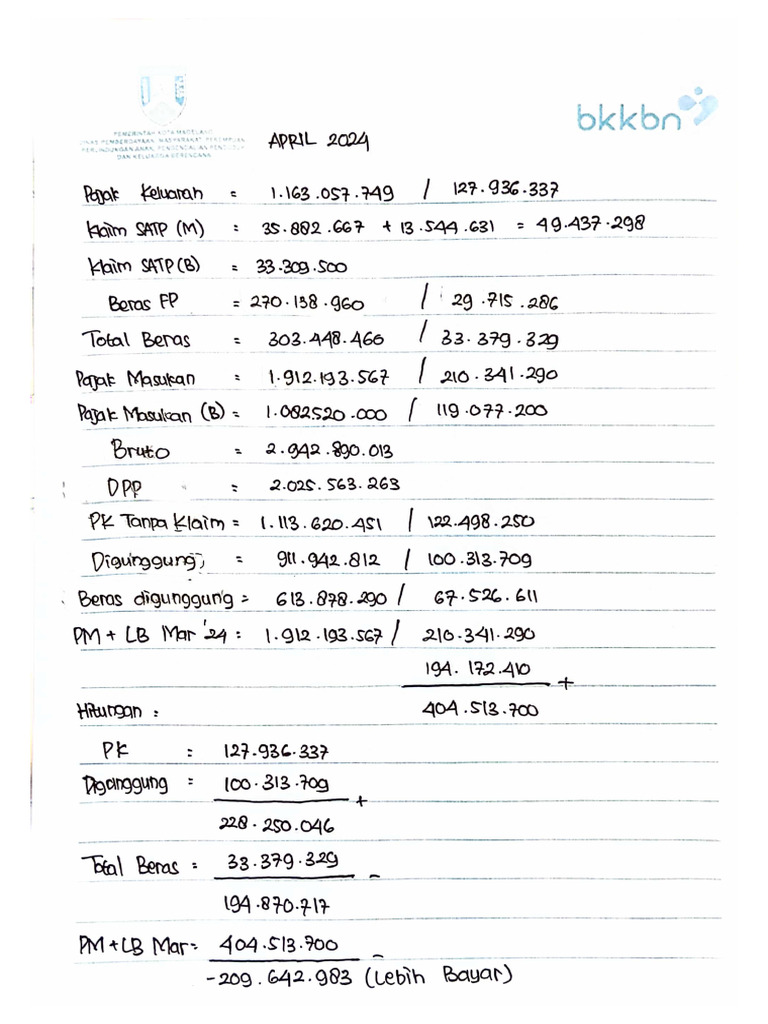 PEMERINTAH KOTA MAGELANG
DINAS PEMBERDAYAAN MASYARAKAT, PEREMPUAN
PERLINDUNGAN ANAK, PENGENDALIAN PENDUDUK
DAN KELUARGA BERENCANA
bkkbn
APRIL 2024
Pajak Keluaran = 1.163.057.749 / 127.936.337
Klaim SATP (M) = 35.892.667 + 13.544.631 = 49.437.298
Klaim SATP (B) = 33.309.500
Beras FP = 270.138.960 / 29.715.286
Total Beras = 303.448.460 / 33.379.329
Pajak Masukan = 1.912.193.567 / 210.341.290
Pajak Masukan (B) = 1.082.520.000 / 119.077.200
Bruto = 2.942.890.013
DPP = 2.025.563.263
PK Tanpa Klaim = 1.113.620.451 / 122.498.250
Digunggung = 911.942.812 / 100.313.709
Beras digunggung = 613.878.290 / 67.526.611
PM + LB Mar '24 : 1.912.193.567 / 210.341.290
194.172.410 +
Hitungan : 404.513.700
PK : 127.936.337
Digunggung : 100.313.709 +
228.250.046
Total Beras : 33.379.329 -
194.870.717
PM + LB Mar = 404.513.700 -
-209.642.983 (Lebih Bayar)